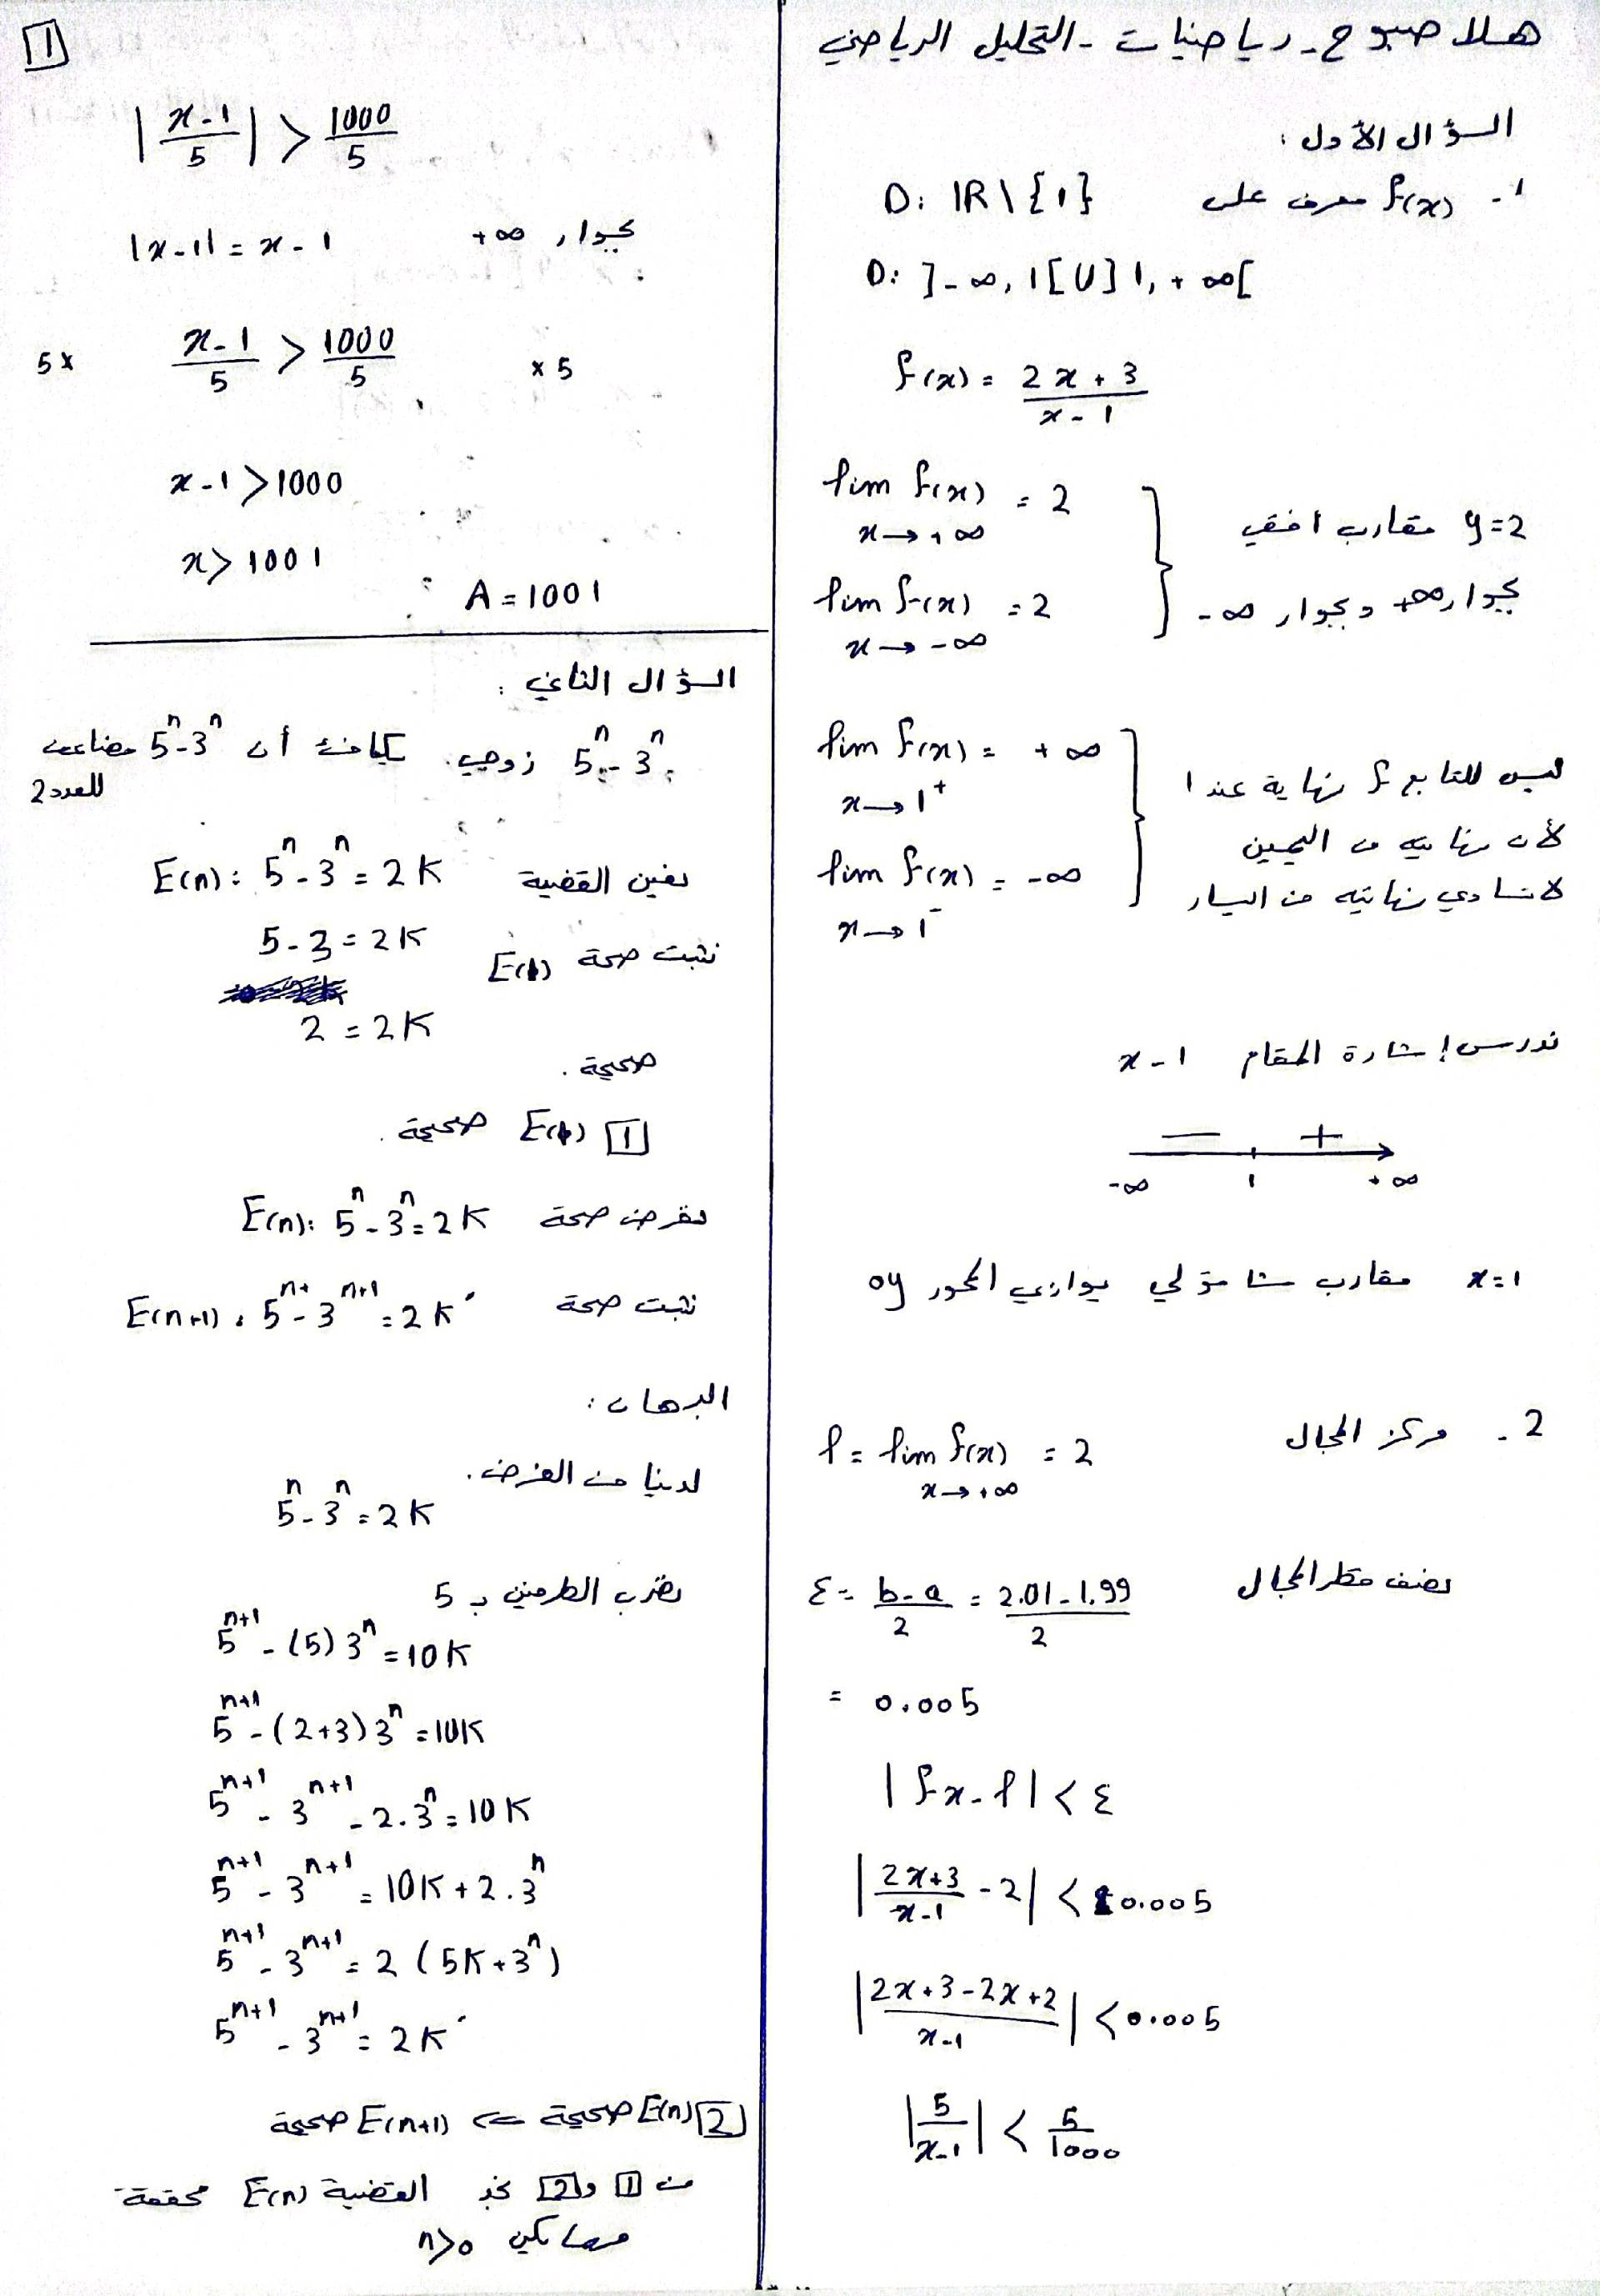 هلا صبوح - رياضيات - التحليل الرياضي
السؤال الأول :
1- f(x) معرف على D: IR \ {1}
D: ]-∞, 1[ U ]1, +∞[
f(x) = (2x + 3)/(x - 1)
lim f(x) = 2
x → +∞
lim f(x) = 2
x → -∞
y=2 مقارب افقي
بجوار +∞ وبجوار -∞
lim f(x) = +∞
x → 1⁺
lim f(x) = -∞
x → 1⁻
ليس للتابع f نهاية عند 1
لأن نهايته من اليمين
لا تساوي نهايته من اليسار
ندرس إشارة المقام x - 1
— +
-∞ 1 +∞
x=1 مقارب شاقولي يوازي المحور oy
2 - مركز المجال l = lim f(x) = 2
x → +∞
نصف قطر المجال ε = (b-a)/2 = (2.01 - 1.99)/2
= 0.005
| fx - l | < ε
| (2x+3)/(x-1) - 2 | < 0.005
| (2x+3-2x+2)/(x-1) | < 0.005
| 5/(x-1) | < 5/1000
1
| (x-1)/5 | > 1000/5
|x-1| = x - 1 بجوار +∞
5× (x-1)/5 > 1000/5 ×5
x - 1 > 1000
x > 1001
A = 1001
السؤال الثاني :
5ⁿ - 3ⁿ زوجي. يكافئ أن 5ⁿ-3ⁿ مضاعف
للعدد 2
نعين القضية E(n): 5ⁿ - 3ⁿ = 2K
نثبت صحة E(1) 5 - 3 = 2K
2 = 2K
صحيحة .
1 E(1) صحيحة .
نفرض صحة E(n): 5ⁿ - 3ⁿ = 2K
نثبت صحة E(n+1): 5ⁿ⁺ - 3ⁿ⁺¹ = 2K'
البرهان :
لدينا من الفرض .
5ⁿ - 3ⁿ = 2K
نضرب الطرفين بـ 5
5ⁿ⁺¹ - (5) 3ⁿ = 10K
5ⁿ⁺¹ - (2+3) 3ⁿ = 10K
5ⁿ⁺¹ - 3ⁿ⁺¹ - 2.3ⁿ = 10K
5ⁿ⁺¹ - 3ⁿ⁺¹ = 10K + 2.3ⁿ
5ⁿ⁺¹ - 3ⁿ⁺¹ = 2 (5K + 3ⁿ)
5ⁿ⁺¹ - 3ⁿ⁺¹ = 2K'
2 E(n) صحيحة => E(n+1) صحيحة
من 1 و 2 نجد القضية E(n) محققة
مهما تكن n>0